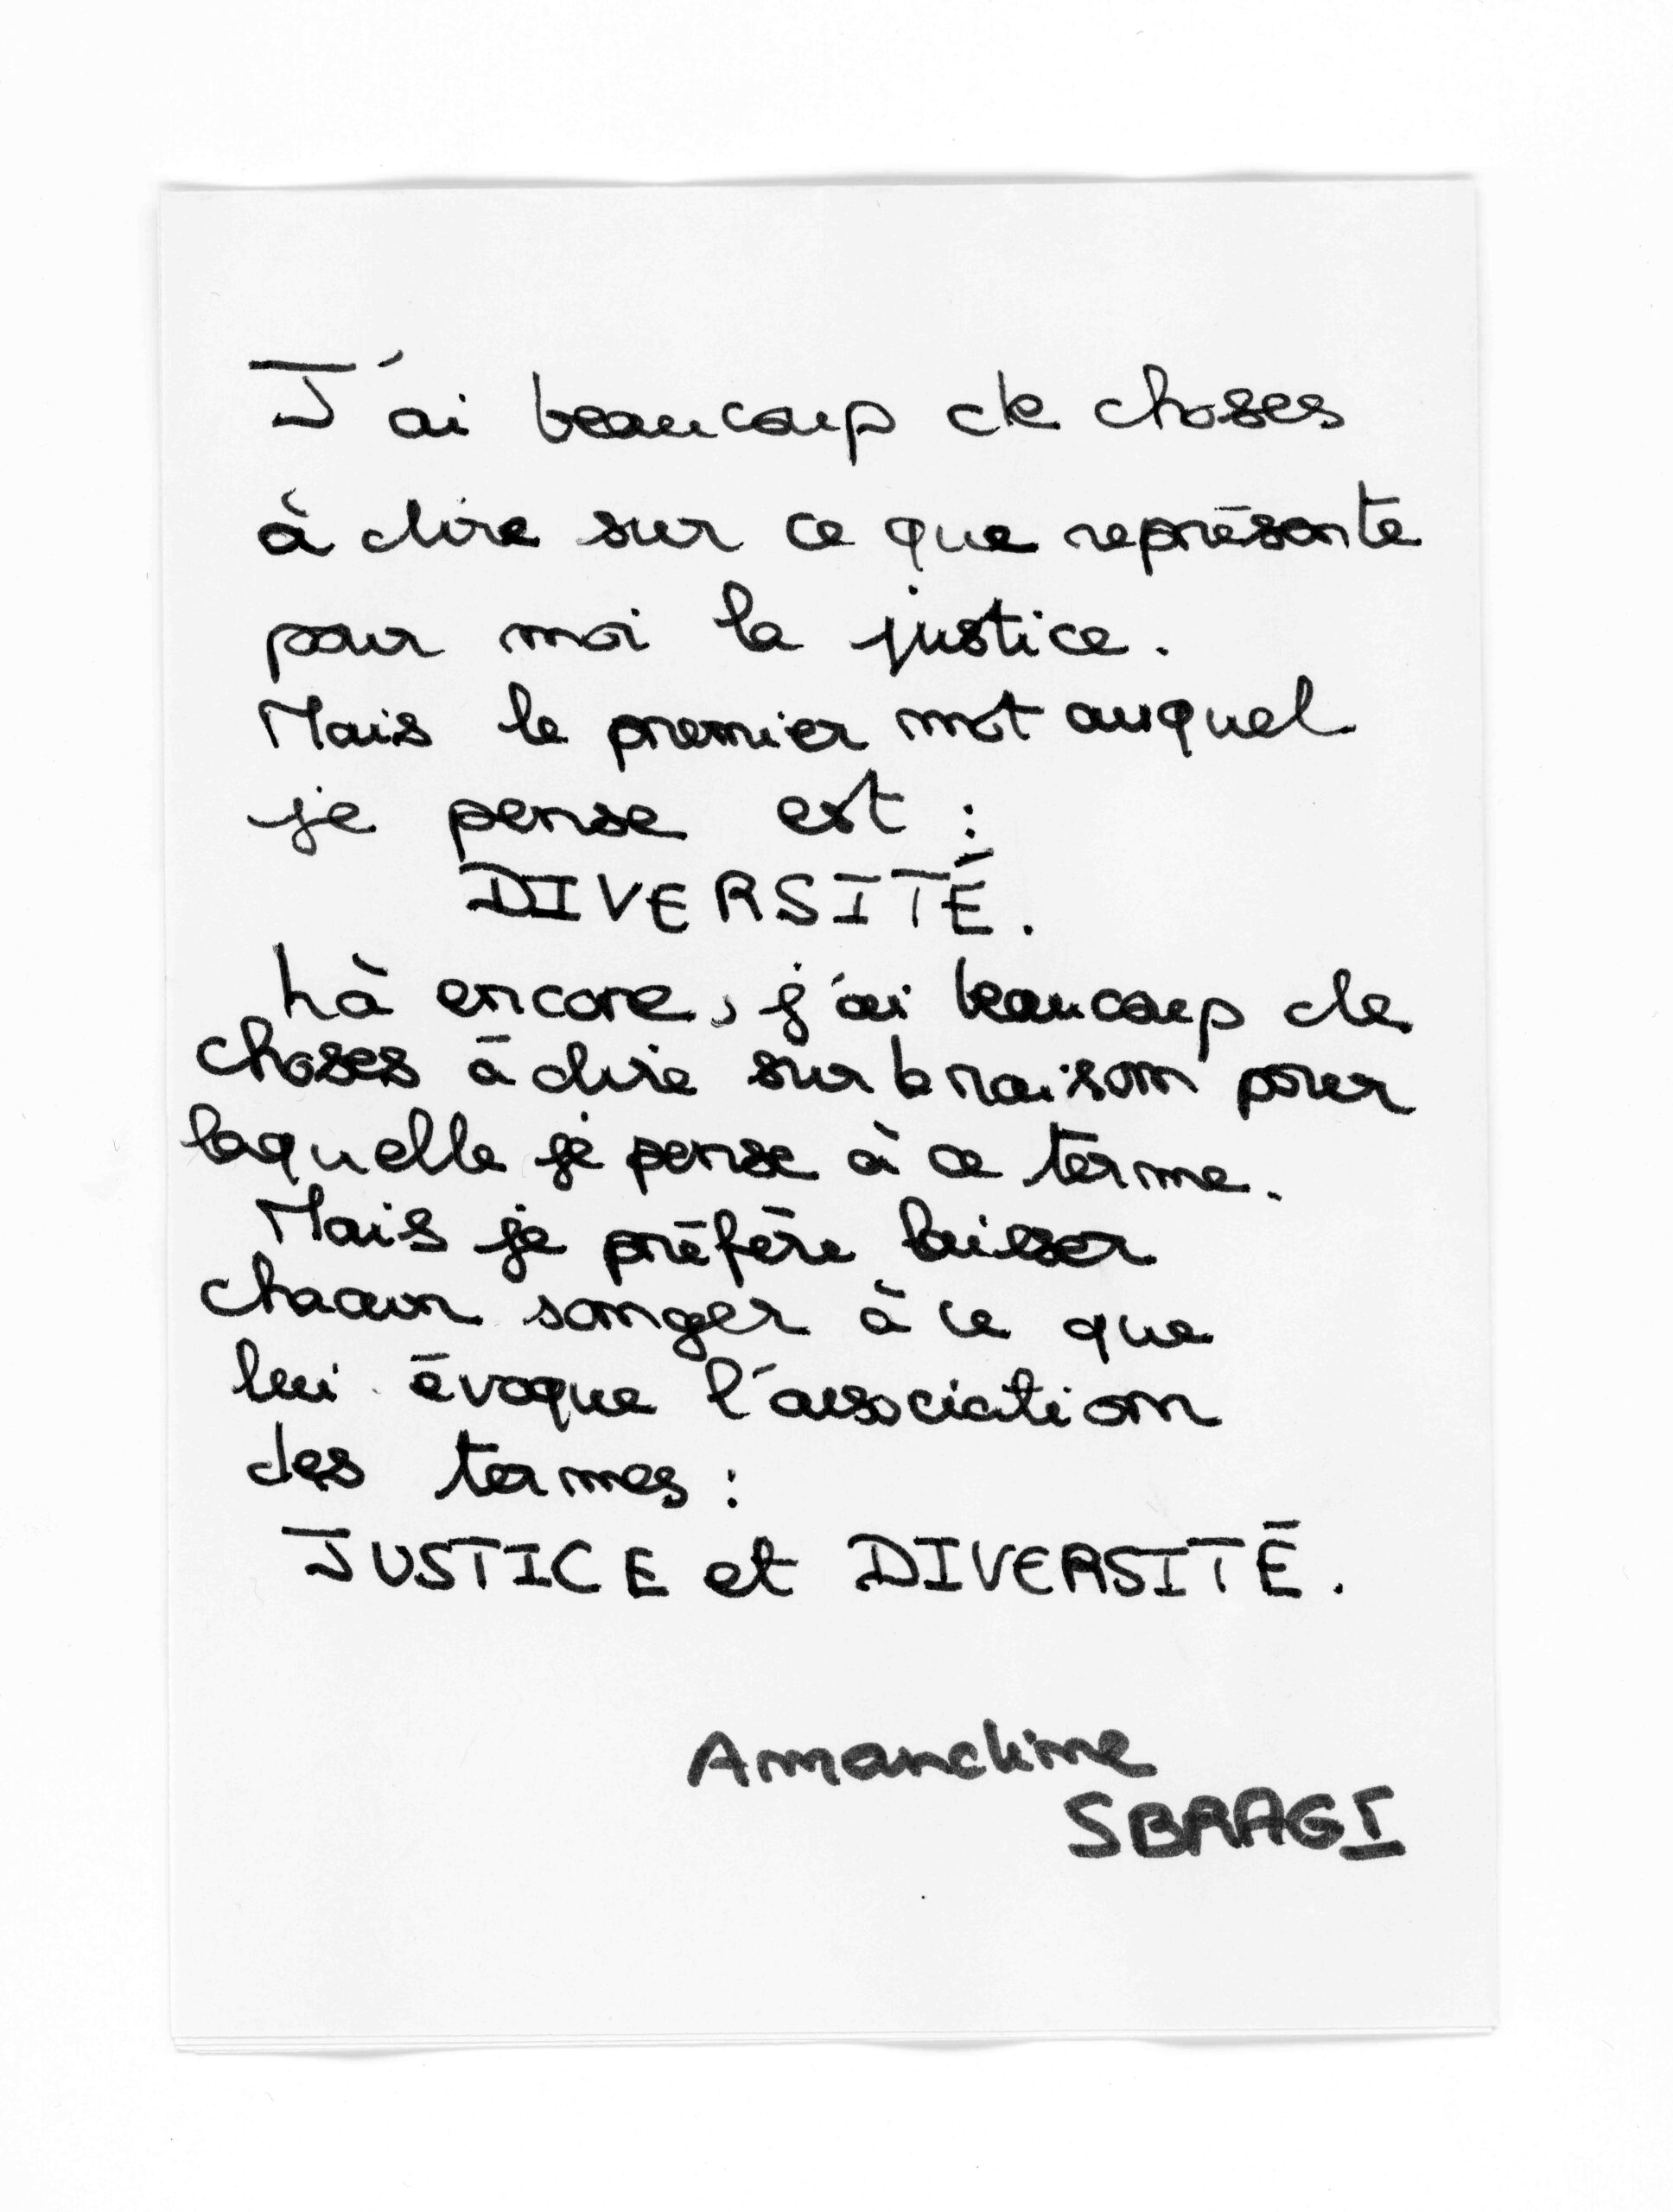 J'ai beaucoup de choses
à dire sur ce que représente
pour moi la justice.
Mais le premier mot auquel
je pense est :
DIVERSITÉ.
Là encore, j'ai beaucoup de
choses à dire sur la raison pour
laquelle je pense à ce terme.
Mais je préfère laisser
chacun songer à ce que
lui évoque l'association
des termes :
JUSTICE et DIVERSITÉ.
Amandine
SBRAGI